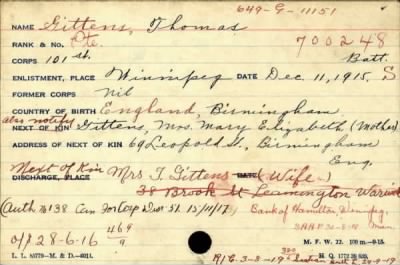 649-G-11151
NAME Gittens, Thomas
RANK & No. Pte. 700248
CORPS 101 st. Batt.
ENLISTMENT, PLACE Winnipeg DATE Dec. 11, 1915, S
FORMER CORPS Nil
COUNTRY OF BIRTH England, Birmingham
also notify
NEXT OF KIN Gittens, Mrs. Mary Elizabeth (Mother)
ADDRESS OF NEXT OF KIN 69 Leopold St., Birmingham
Eng.
Next of Kin Mrs T. Gittens (Wife)
DISCHARGE, PLACE DATE
38 Brook St Leamington
(Auth 138 Can For Corp 51. 15/11/17) Bank of Hamilton, Winnipeg,
Man.
o/s 28-6-16 469/9
M. F. W. 22. 100 m.-9-15.
H. Q. 1772-39-839.
L. L. 85779-M. & D.-6011.
R/G. 3-8-19